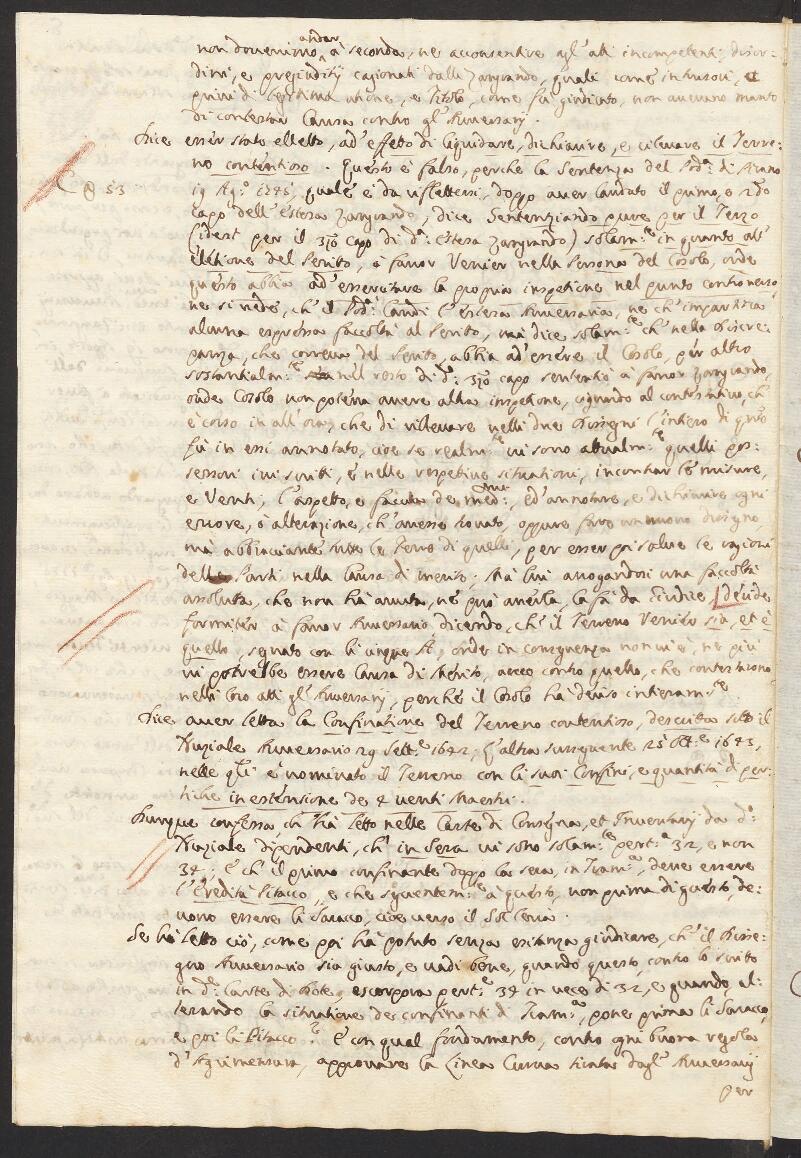 andar
non dovenimo à seconda, ne acconsentire agl'atti incompetenti, disor:
dini, e pregiuditij cagionati dalli Zangrando, quali come intrusori, et
privi di legitima attione, e Titolo, come fù giudicato, non avevano manto
di contestar Causa contro gl'Aversarij.
Dice esser stato elletto, ad'effetto di liquidare, dichiarire, e rilevare il Terre:
no contentioso. Questo è falso, perche la Sentenza del Pod.à di
C 8 53
19 Ag.o 1745, quale è da riflettersi, doppo aver laudato il primo, e 2do
capo dell'estesa Zangrando, dice Sentenziando pure per il Terzo
(idest per il 3zo capo di d.a estesa Zangrando) solam.te in quanto all'
ellettione del Perito, à favor Venier nella Persona del Cosolo, onde
questo abbia ad'essercitare la propria inspetione nel punto controverso,
ne si vede, ch'il Pod.à laudi l'estesa Aversaria, ne ch'impartisca
alcuna espressa facoltà al Perito, mà dice solam.te ch'nella discre:
panza, che correva del Perito, abbia ad'essere il Cosolo, per altro
sostantialm.te nel resto di d.o 3zo capo sententiò à favor Zangrando,
onde Cosolo non poteva avere altra inspetione, riguardo al contestativo, ch'
è corso in all'ora, che di rillevare nelli due dissegni l'intiero di q.to
fù in essi annotato, cioè se realm.te vi sono attualm.te quelli pos:
sessori ivi scritti, e nelle respetive situationi, incontrar le misure,
e Venti, l'aspetto, e faccia de med.mi, ed'annotare, e dichiarire ogni
errore, ò alterazione, ch'avesse trovato, oppure fare un nuovo disegno,
mà abbracciante tutte le Terre di quelli, per esser poi salve le ragioni
delle Parti nella Causa di merito; Mà lui arrogandosi una facoltà
assoluta, che non hà avuta, né può averla, la fà da Giudice, decide
formiter à favor Aversario dicendo, ch'il Terreno Venier sia, et è
quello, segnato con li cinque A, onde in conseguenza non vi è, ne più
vi potrebbe essere Causa di Merito, anco contro quello, che contestarono
nelli loro atti gl'Aversarij, perché il Cosolo hà deciso intieram.te.
Dice aver letta la Confinatione del Terreno contentioso, descritta sotto il
Nuziale Aversario 29 Sett.e 1642, e l'altra susseguente 25 Ott.e 1643,
nelle q.li è nominato il Terreno con li suoi Confini, e quantità di per:
tiche in estensione de 4 venti Maestri.
Dunque confessa, ch'hà letto nelle Carte di Consegna, et Inventarij da d.o
Nuziale dipendenti, ch' in Sera vi sono solam.te pert.e 32, e non
34; E ch'il primo confinante doppo la sera, in Tram.na, deve essere
l'Eredità Pitacco, e che seguentem.te à questo, non prima di questo, de:
vono essere li Saracco, cioè verso il Sol leva.
Se hà letto ciò, come poi hà potuto senza esitanza giudicare, ch'il Disse:
gno Aversario sia giusto, e vadi bene, quando questo, contro lo scritto
in d.e Carte di Dote, escorpora pert.e 34 in vece di 32, e quando, al:
terando la situatione de confinanti di Tram.na, pone prima li Saracco,
e poi li Pitacco? E con qual fondamento, contro ogni buona regola
d'Agrimensura, approvare la Linea Curva tirata dagl'Aversarij
per